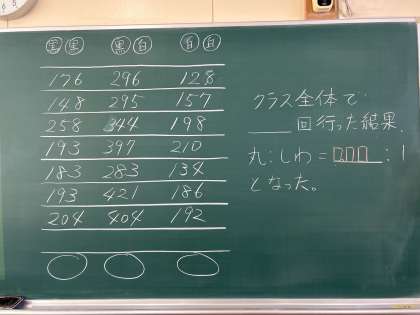 黒黒 黒白 白白
176 296 128
148 295 157
258 344 198
193 397 210
183 283 134
193 421 186
204 404 192
クラス全体で
回行った結果、
丸:しわ=□.□□:1
となった。